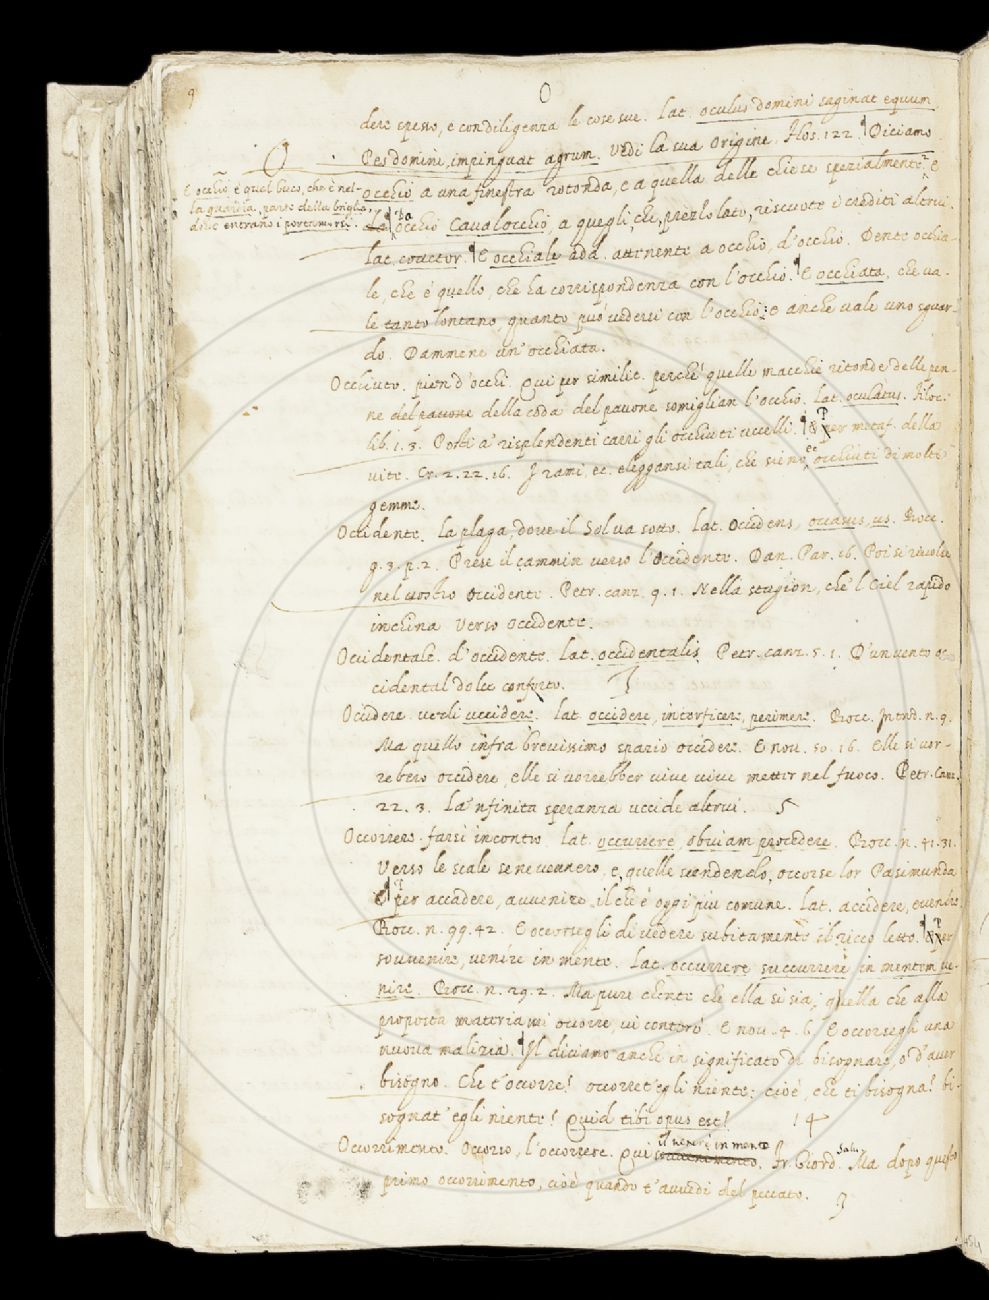 9
O
dere spesso, e con diligenza le cose sue. Lat. oculus domini saginat equum
Pes domini impinguat agrum. Vedi la sua origine. Flos. 122. Diciamo
O
E occhio è quel buco, che è nel-
la guardia, parte della briglia,
dove entrano i portamorsi.
occhio a una finestra rotonda, e a quella delle chiese spezialmente, e
Da occhio Cavalocchio, a quegli, che, prezzolato, riscuote i crediti altrui.
lat. coactor. E occhiale add. attenente a occhio, d'occhio. Dente occhia-
le, che è quello, che ha corrispondenza con l'occhio. E occhiata, che va-
le tanto lontano, quanto può vedersi con l'occhio: e anche vale uno sguar-
do. Dammene un'occhiata.
Occhiuto. pien d'occhi. Qui per similit. perchè quelle macchie ritonde delle pen-
ne del pavone della coda del pavone somiglian l'occhio. Lat. oculatus. Filoc.
lib. 1. 3. Posti a' risplendenti carri gli occhiuti uccelli. P per metaf. della
vite. Cr. 2. 22. 16. I rami, ec. eleggansi tali, che sieno occhiuti di molte
gemme.
Occidente. la plaga, dove il Sol va sotto. Lat. Occidens, occasus, us. Bocc.
g. 3. p. 2. Prese il cammin verso l'Occidente. Dan. Par. 16. Poi si rivolse
nel vostro Occidente. Petr. canz. 9. 1. Nella stagion, che 'l Ciel rapido
inchina verso Occidente.
Occidentale. d'occidente. Lat. occidentalis. Petr. canz. 5. 1. D'un vento oc
cidental dolce conforto.
Occidere. vedi uccidere. Lat. occidere, interficere, perimere. Bocc. Introd. n. 9.
Ma quello infra brevissimo spazio occidere. E nov. 50. 16. Elle si vor-
rebero occidere, elle si vorrebber vive vive metter nel fuoco. Petr. Canz.
22. 3. La 'nfinita speranza uccide altrui. 5
Occorrere. farsi incontro. Lat. occurrere, obviam procedere. Bocc. n. 41. 31.
Verso le scale se ne vennero, e, quelle scendendo, occorse lor Pasimunda
P per accadere, avvenire, il che è oggi più comune. Lat. accidere, evenire.
Bocc. n. 99. 42. E occorsegli di vedere subitamente il ricco letto. P per
sovvenire, venire in mente. Lat. occurrere succurrere in mentem ve-
nire. Bocc. n. 29. 2. Ma pure chente che ella si sia, quella che alla
proposta materia mi occorre, vi conterò. E nov. 4. 6. E occorsegli una
nuova malizia. Il diciamo anche in significato di bisognare, o d'aver
bisogno. Che t'occorre? occorret'egli niente: cioè, che ti bisogna? bi-
sognat'egli niente? Quid tibi opus est? 14
Occorrimento. Occorso, l'occorrere. Qui il venire in mente. Fr. Giord. Salv. Ma dopo questo
primo occorrimento, cioè quando t'avvedi del peccato.